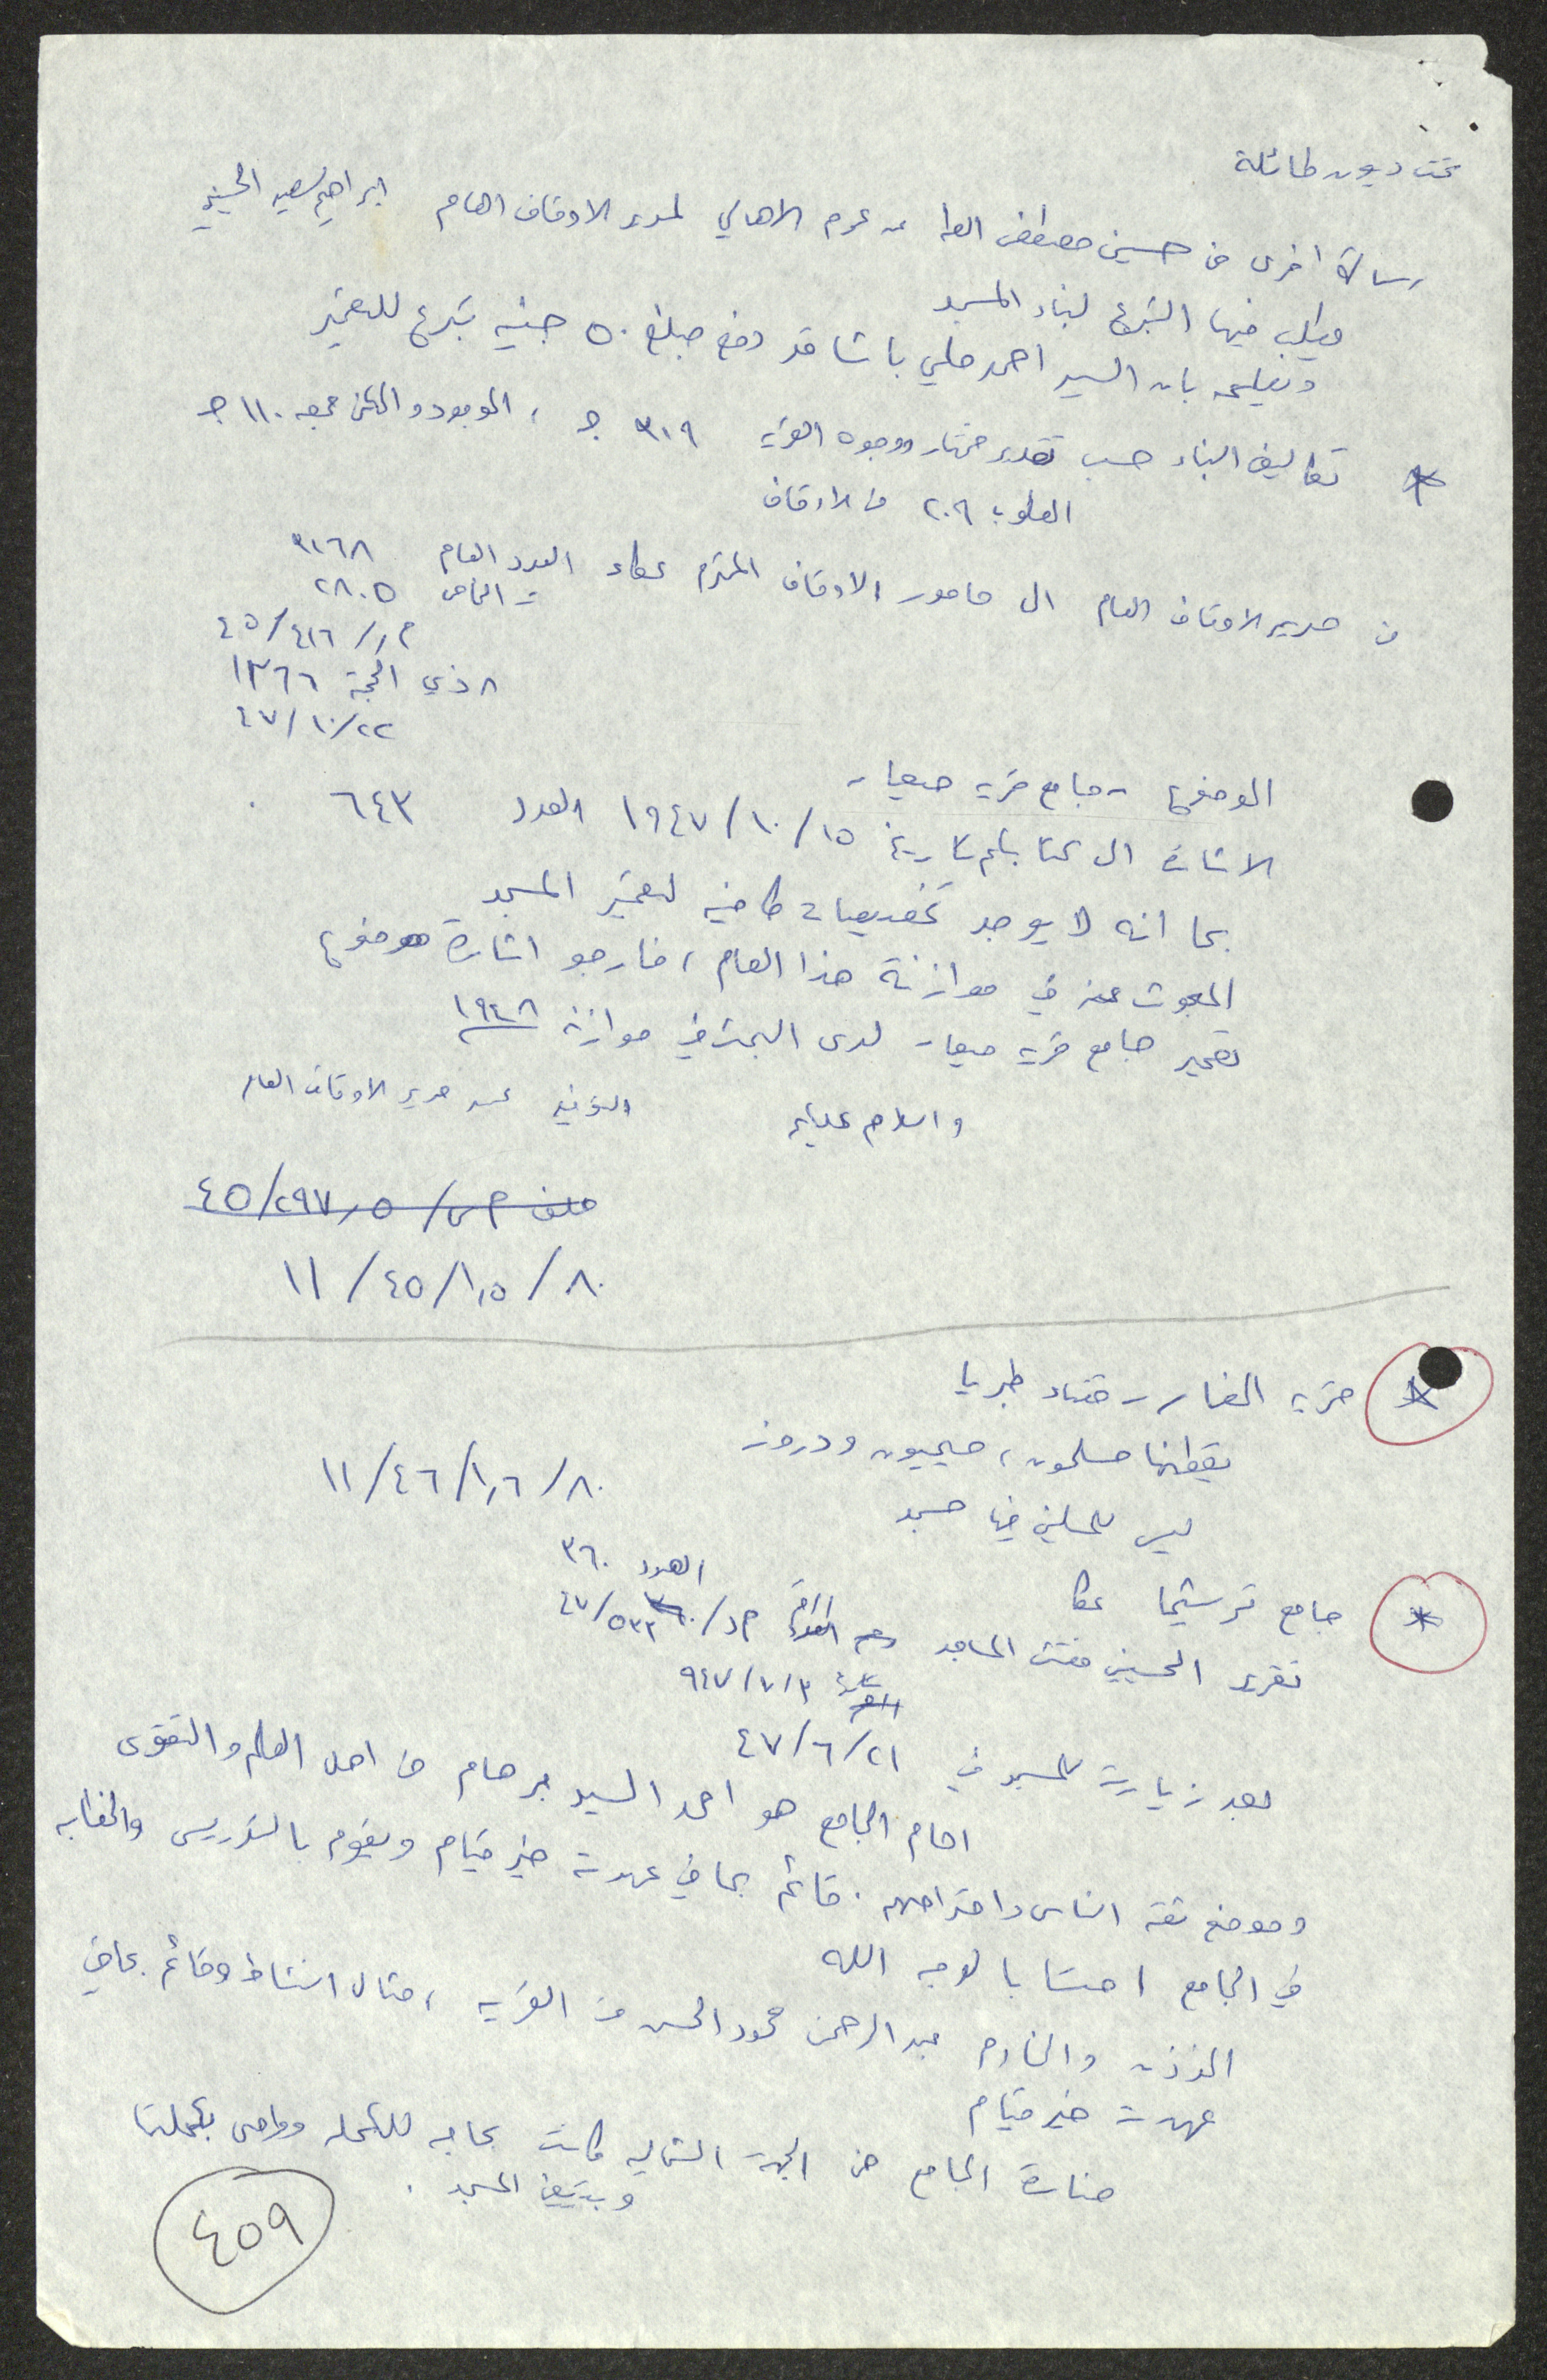 تحت ديون طائلة
رسالة اخرى من حسين مصطفى العلي عن عموم الاهالي لمدير الاوقاف العام ابراهيم سعيد الحسيني
ويطلب فيها التبرع لبناء المسجد
ويعلمه بان السيد احمد حلمي باشا قد دفع مبلغ ٥٠ جنيه تبرع للتعمير
* تكاليف البناء حسب تقدير مختار ووجوه القرية ٣١٩ ج ، الموجود والممكن جمعه ١١٠ ج
المطلوب ٢٠٩ من الاوقاف
من مدير الاوقاف العام الى مامور الاوقاف المحترم عكا العدد العام ٣١٦٨
= الخاص ٢٨٠٥
م ر/ ٤٥/٤١٦
٨ ذي الحجة ١٣٦٦
٤٧/١٠/٢٢
الموضوع - جامع قرية ميعار
الاشارة الى كتابكم تاريخ ١٩٤٧/١٠/١٥ العدد ٦٤٣
بما انه لا يوجد تخصيصات كافية لتعمير المسجد
المبحوث عنه في موازنة هذا العام ، فارجو اثارة موضوع
تعمير جامع قرية ميعار لدى البحث في موازنة ١٩٤٨
والسلام عليكم
التوقيع عن مدير الاوقاف العام
ملف م س/ ٤٥/٢٩٧,٥
١١/٤٥/١,٥/٨٠
* قرية المغار - قضاء طبريا
يقطنها مسلمون ، مسيحيون ودروز
١١/٤٦/١,٦/٨٠
ليس للمسلمين فيها مسجد
* جامع ترشيحا عكا
العدد ٣٦٠
تقرير الحسيني مفتش المساجد رقم م د/ ٤٧/٥٣٣
تاريخ ٩٤٧/٧/٣
بعد زيارته للمسجد في ٤٧/٦/٢١
امام الجامع هو احمد السيد برهام من اهل العلم والتقوى
وموضع ثقة الناس واحترامهم . قائم بما في عهدته خير قيام ويقوم بالتدريس والخطابه
في الجامع احتسابا لوجه الله
المؤذن والخادم عبد الرحمن محمود الحسن من القرية ، مثال النشاط وقائم بما في
عهدته خير قيام
منارة الجامع من الجهة الشمالية كانت بحاجه للكحله واوصى بكحلتها
وتبييض المسجد .
٤٥٩